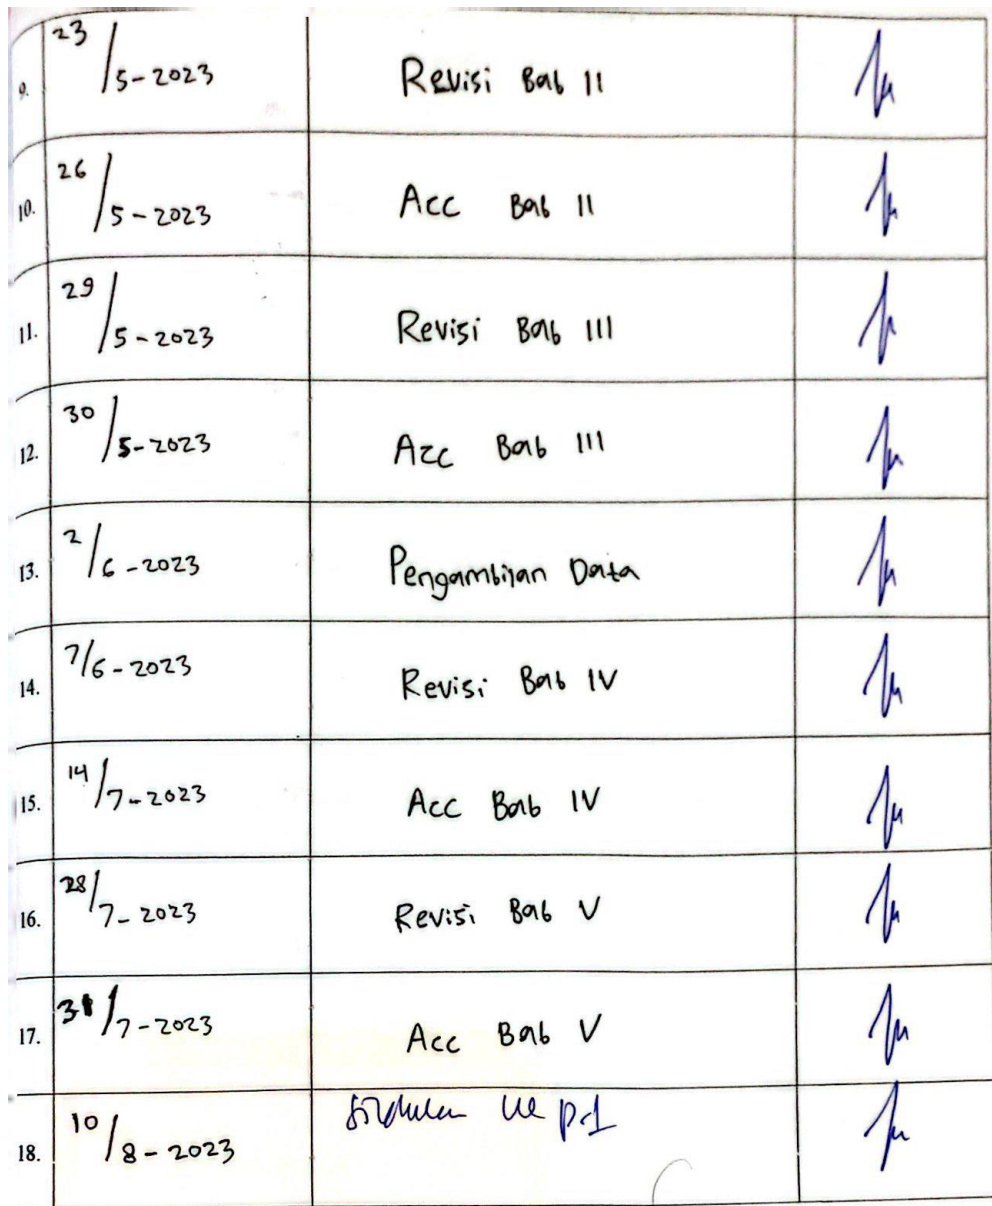 9. 23/5-2023 Revisi Bab II
10. 26/5-2023 Acc Bab II
11. 29/5-2023 Revisi Bab III
12. 30/5-2023 Acc Bab III
13. 2/6-2023 Pengambilan Data
14. 7/6-2023 Revisi Bab IV
15. 14/7-2023 Acc Bab IV
16. 28/7-2023 Revisi Bab V
17. 31/7-2023 Acc Bab V
18. 10/8-2023 ke p.1